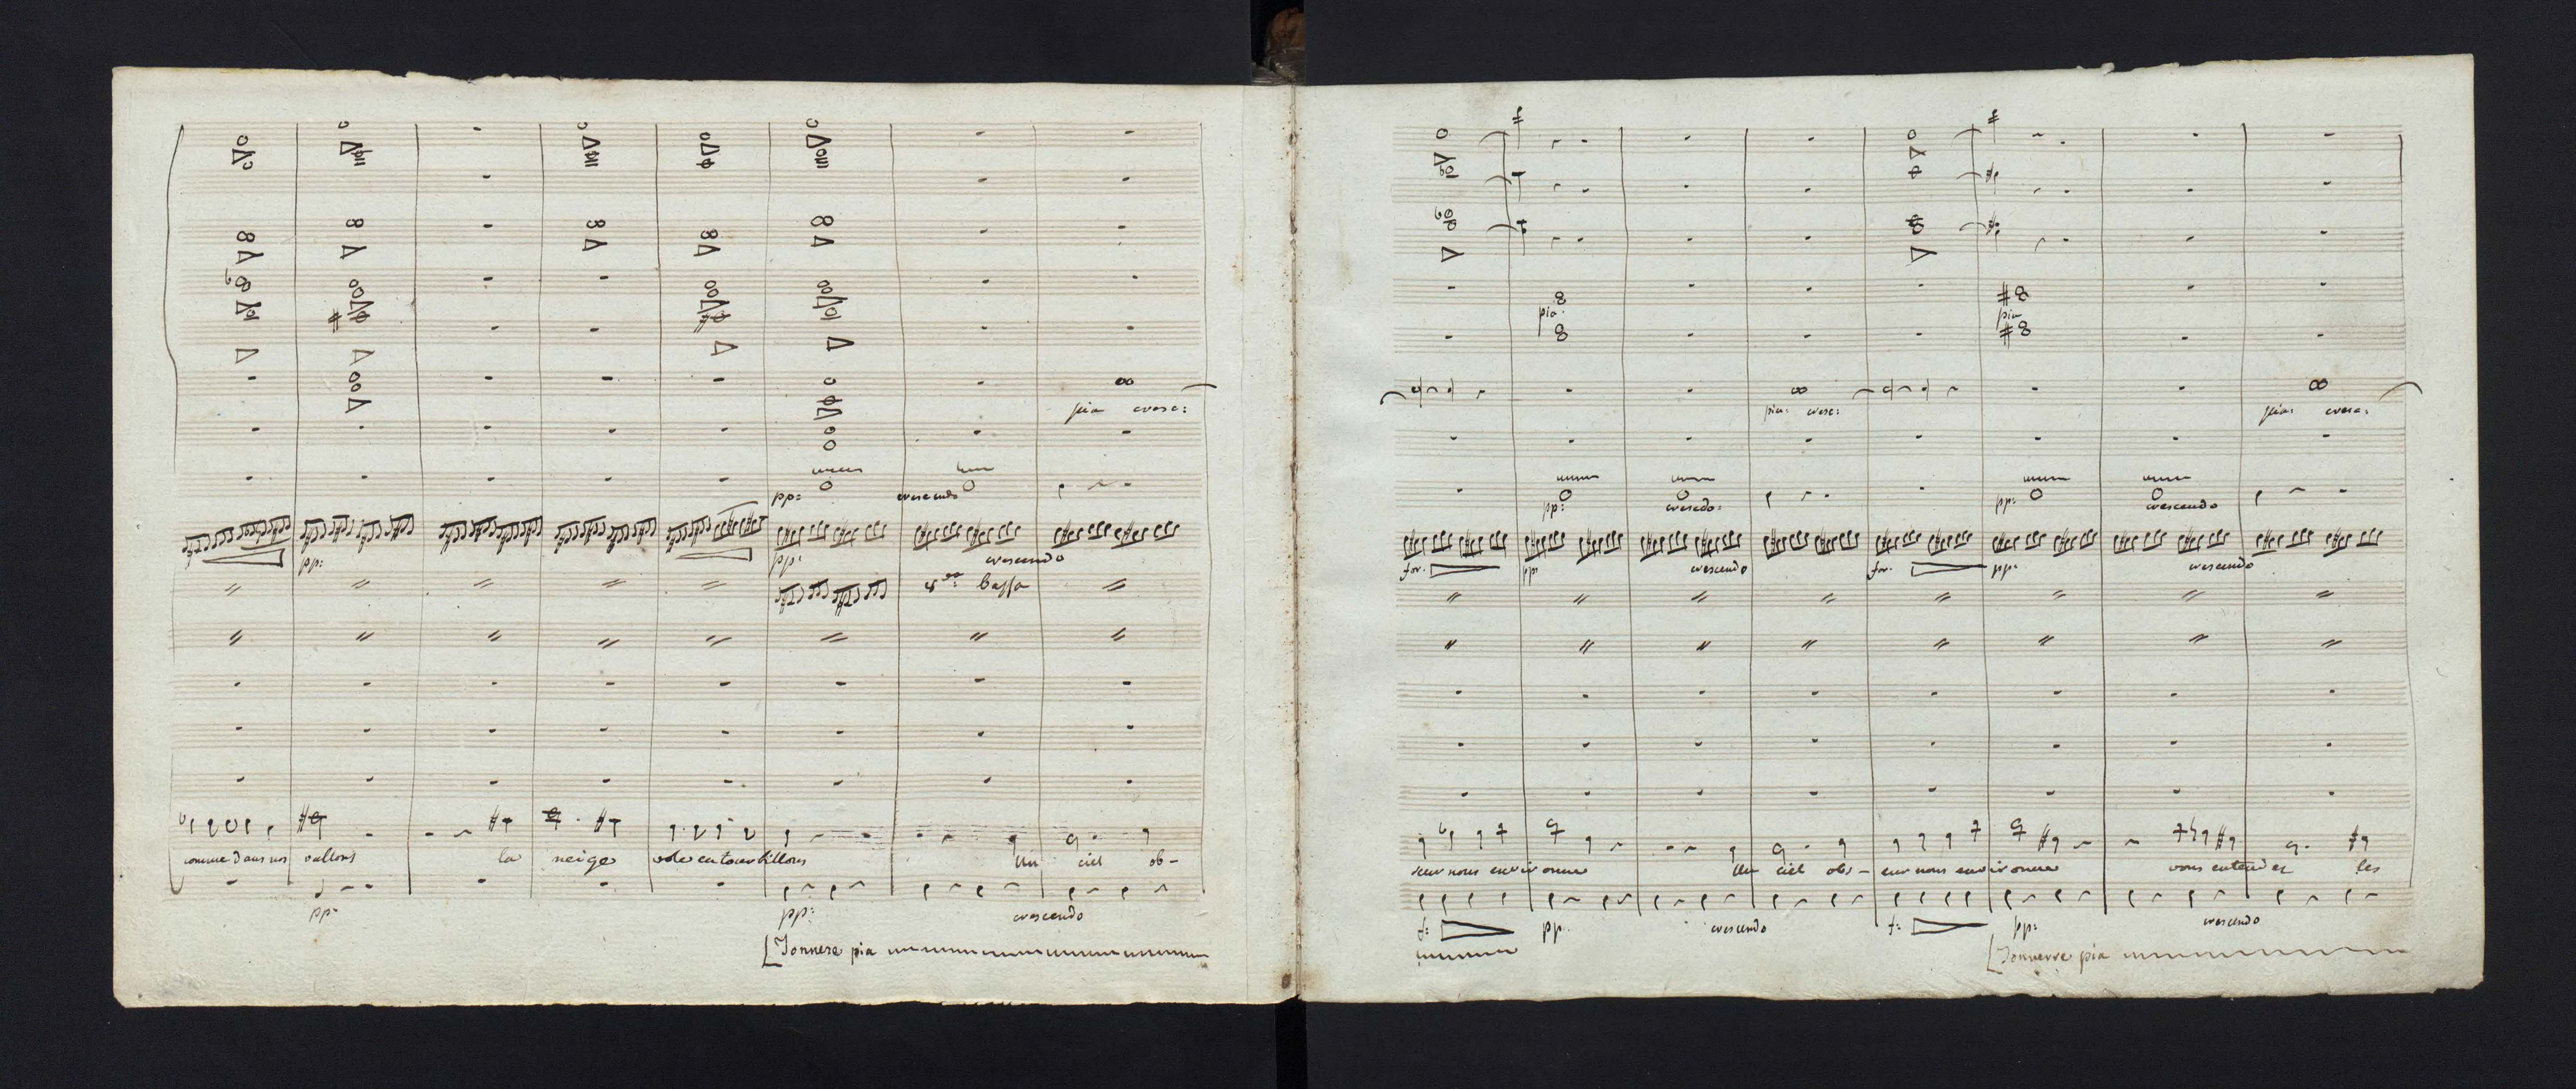 pia cresc:
pp: crescendo
pp: pp: crescendo
8va bassa
comme dans nos vallons la neige vole en tourbillons Un ciel ob-
pp: pp: crescendo
Tonnere pia
pia: pia
pia: cresc: pia: cresc:
pp: crescdo: pp: crescendo
for. pp: crescendo for. pp: crescendo
scur nous environne Un ciel obs- cur nous environne vous entendez les
f: pp. crescendo f: pp: crescendo
Tonnerre pia